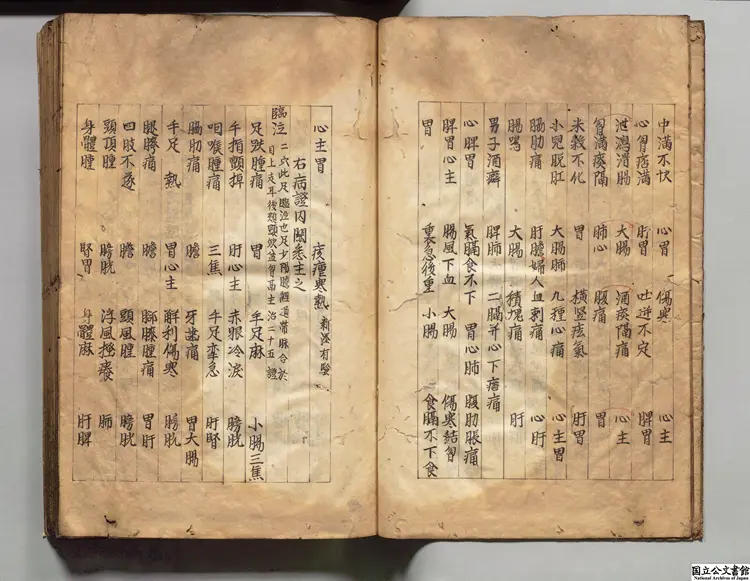 中滿不快 心胃 傷寒 心主
心胷痞滿 肝胃 吐逆不定 脾胃
泄瀉滑腸 大腸 酒痰膈痛 心主
胷滿痰隔 肺心 腹痛 胃
米穀不化 胃 橫竪痃氣 肝胃
小兒脫肛 大腸肺 九種心痛 心主胃
脇肋痛 肝膽 婦人血刺痛 心肝
腸鳴 大腸 積塊痛 肝
男子酒癖 脾肺 二膈并心下痞痛
心脾胃 氣膈食不下 胃心肺 腹肋脹痛
脾胃心主 腸風下血 大腸 傷寒結胷
胃 裏急後重 小腸 食膈不下食
心主胃 痎瘧寒熱 新添有驗
右病證內關悉主之
臨泣 二穴此足臨泣也足少陽膽經通帶脉合於
目上支耳後頰頸缺盆胷鬲主治二十五證
足趺腫痛 胃 手足麻 小腸三焦
手指顫掉 肝心主 赤眼冷淚 膀胱
咽喉腫痛 三焦 手足攣急 肝腎
脇肋痛 膽 牙齒痛 胃大腸
手足 熱 胃心主 解利傷寒 膀胱
腿膝痛 膽 脚膝腫痛 胃肝
四肢不遂 膽 頭風腫 膀胱
頭頂腫 膽膀胱 浮風搔癢 肺
身體腫 腎胃 身體麻 肝脾
国立公文書館
National Archives of Japan